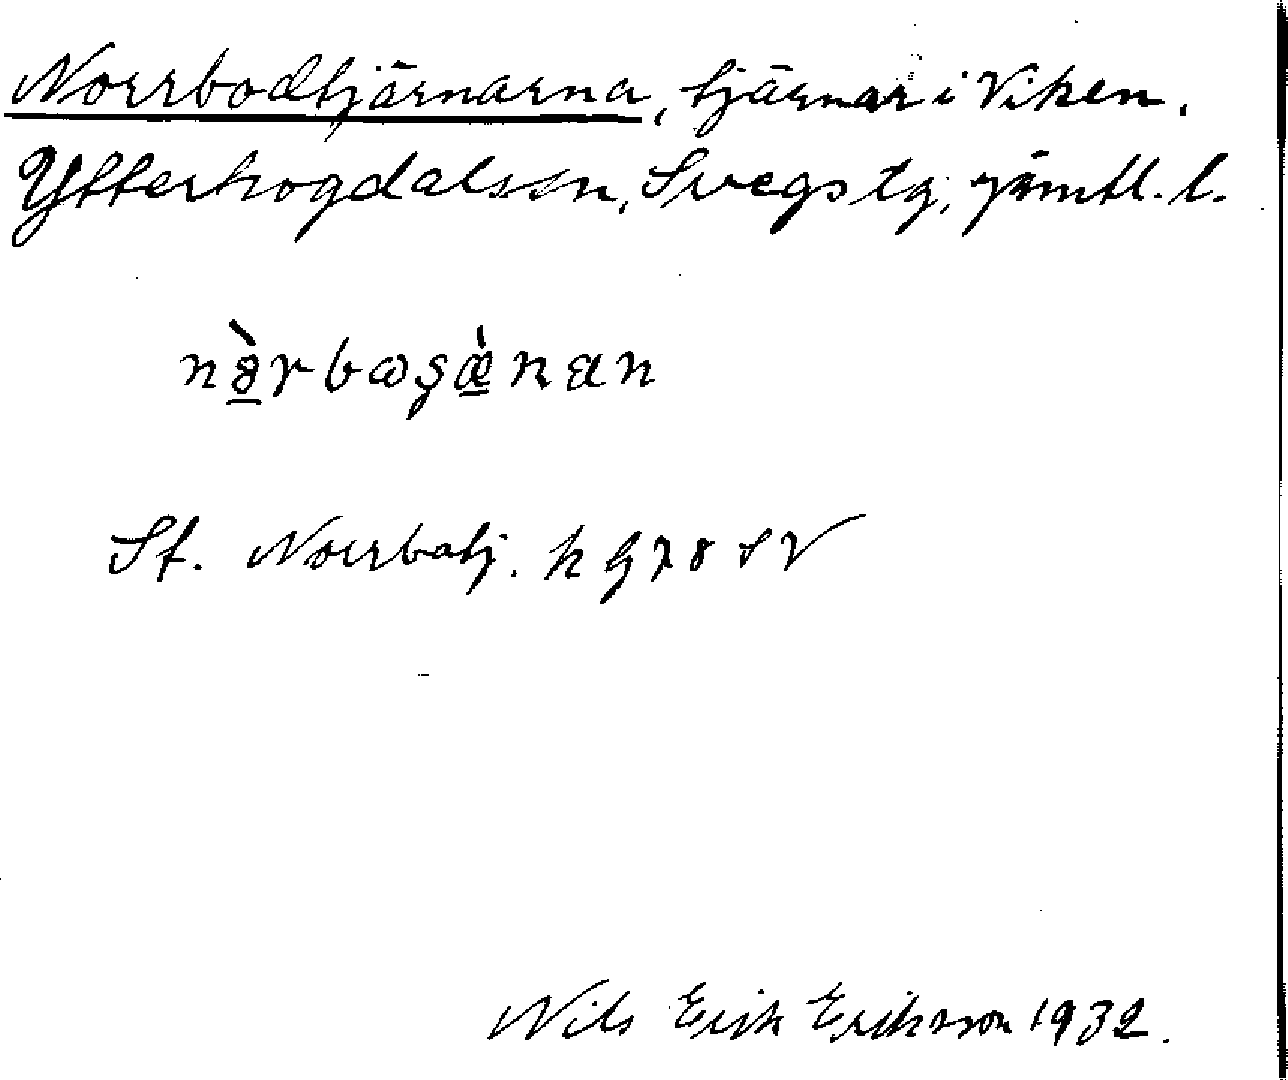 Norrbodtjärnarna, tjärnar i Viken,
Ytterhogdalssn, Svegs tg, Jämtl. l.
St. Norrbatj. k G 78 SV
Nils Erik Eriksson 1932.